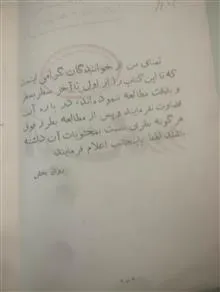 تمنای من از خوانندگان گرامی اینست
که تا این کتاب را از اول تا آخر سطر بسطر
و بادقت مطالعه ننموده‌اند، در باره آن
قضاوت نفرمایند و پس از مطالعه بطرز فوق
هر گونه نظری نسبت بمحتویات آن داشته
باشند لطفا باینجانب اعلام فرمایند